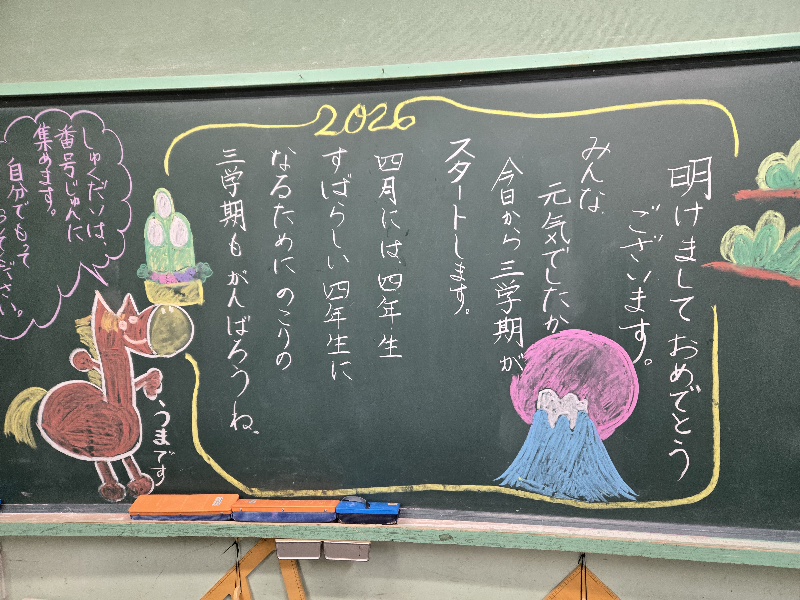 2026
明けましておめでとう
ございます。
みんな
元気でしたか
今日から三学期が
スタートします。
四月には、四年生
すばらしい四年生に
なるために のこりの
三学期もがんばろうね。
しゅくだいは、
番号じゅんに
集めます。
自分でもって
ください。
うまです